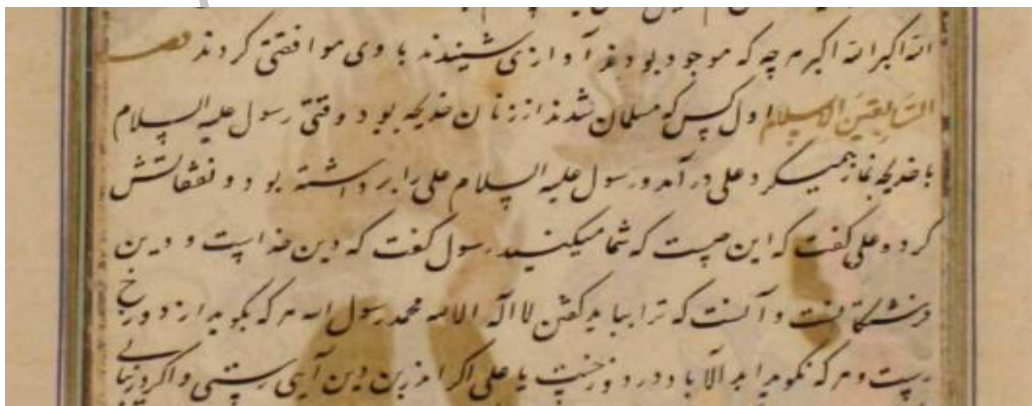 الله اکبر الله اکبر هر چه که موجود بودند آوازی شنیدند با وی موافقتی کردند قصه
السَّابِقِينَ الاسلام اول کس که مسلمان شدند از زنان خدیجه بود وقتی رسول علیه السلام
با خدیجه نماز همیکرد علی در آمد و رسول علیه السلام علی را برداشته بود و نفقاتش
کرد و علی گفت که این چیست که شما میکنید رسول گفت که دین خدایست و دین
فرشتگانست و آنست که ترا بباید گفتن لا اله الا الله محمد رسول الله هر که بگوید از دوزخ
برست و هر که نگوید ابد الآباد در دوزخست یا علی اگر اندرین دین آیی رستی و اگر